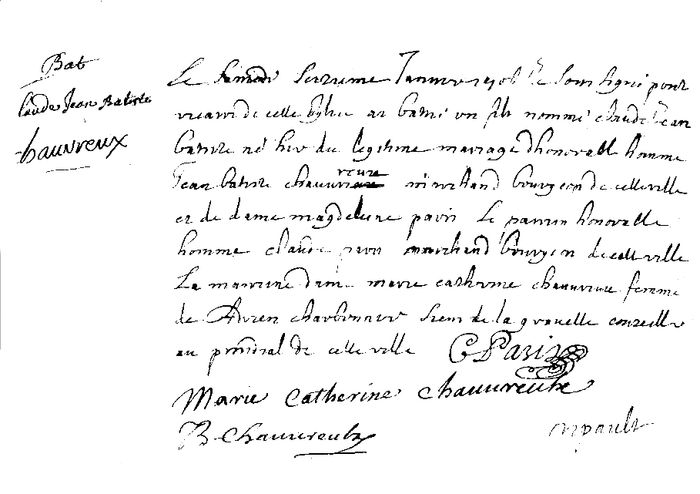 Bat
Claude Jean Batiste
Chauvreux
Le Samedi seizieme Janvier Je Soussigné pretre
vicaire de cette Eglise ay batisé un fils nommé claude jean
batiste né hier du legitime mariage d'honorable homme
Jean batiste chauvreux marchand bourgeois de cette ville
et de dame magdeleine paris Le parrin honorable
homme claude paris marchand bourgeois de cette ville
La marrine dame marie catherine chauvreux femme
de charbonnier Sieur de la gravelle conseiller
au presidial de cette ville C Paris
Marie Catherine Chauvreulx
B Chauvreulx